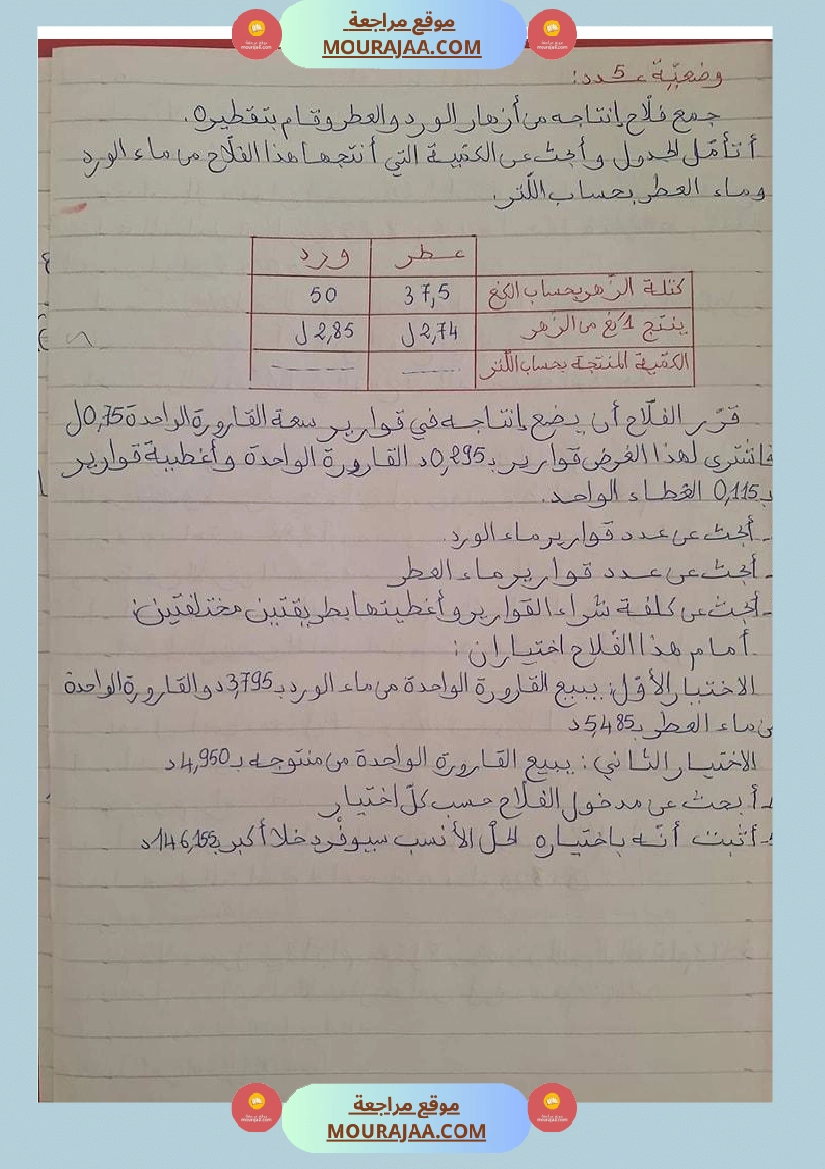 موقع مراجعة
MOURAJAA.COM
وضعيّة عـ5ـدد:
جمع فلّاح إنتاجه من أزهار الورد والعطر وقام بتقطيره.
أتأمّل الجدول وأبحث عن الكمّية التي أنتجها هذا الفلّاح من ماء الورد
وماء العطر بحساب اللّتر.
عـطر ورد
كتلة الزّهر بحساب الكغ 37,5 50
ينتج 1كغ من الزّهر 2,74 ل 2,85 ل
الكمّية المنتجة بحساب اللّتر ...... ......
قرّر الفلّاح أن يضع إنتاجه في قوارير سعة القارورة الواحدة 0,75ل
فاشترى لهذا الغرض قوارير بـ0,295د القارورة الواحدة وأغطية قوارير
بـ0,115 الغطاء الواحد.
- أبحث عن عدد قوارير ماء الورد.
- أبحث عن عدد قوارير ماء العطر
- أبحث عن كلفة شراء القوارير وأغطيتها بطريقتين مختلفتين:
أمام هذا الفلّاح اختياران:
الاختيار الأوّل: يبيع القارورة الواحدة من ماء الورد بـ3,795د والقارورة الواحدة
من ماء العطر بـ5,485د
الاختيار الثّاني: يبيع القارورة الواحدة من منتوجه بـ4,950د
- أبحث عن مدخول الفلّاح حسب كلّ اختيار
- أثبت أنّه باختياره الحلّ الأنسب سيوفّر دخلا أكبر بـ146,155د
موقع مراجعة
MOURAJAA.COM